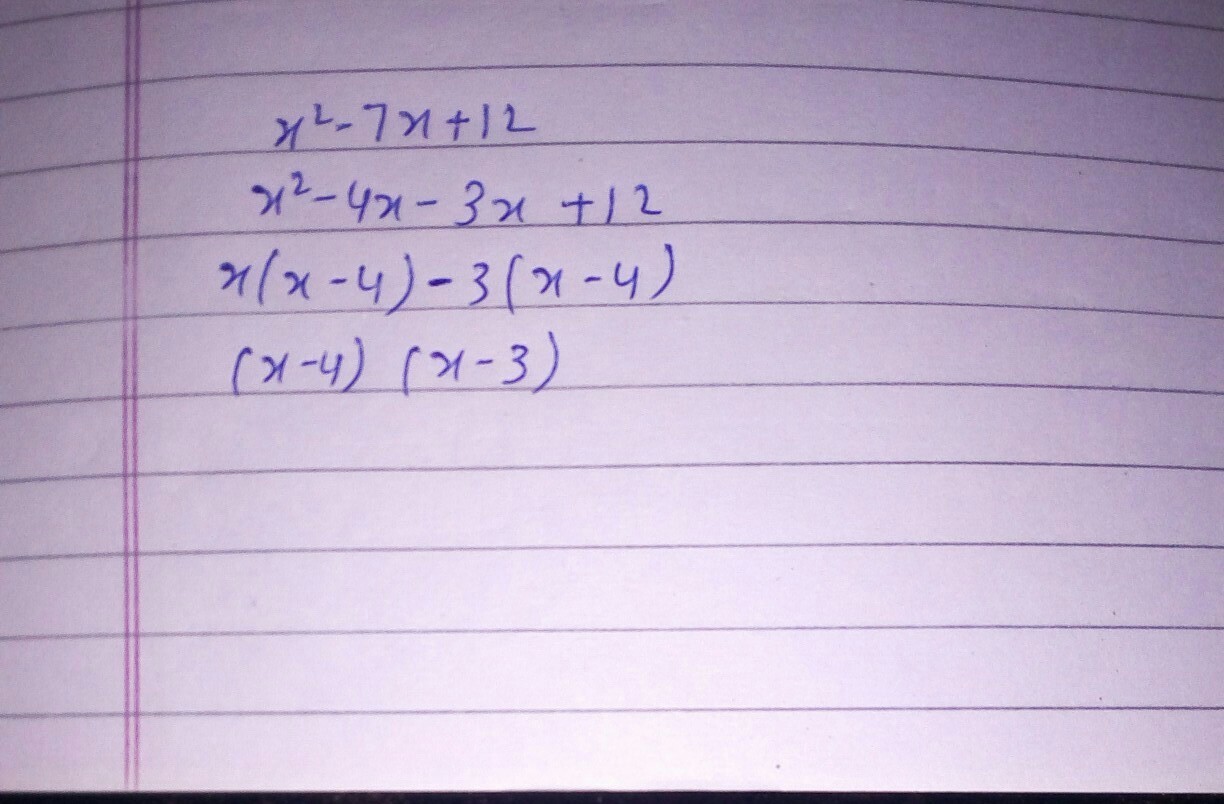 x²-7x+12
x²-4x-3x+12
x(x-4)-3(x-4)
(x-4) (x-3)